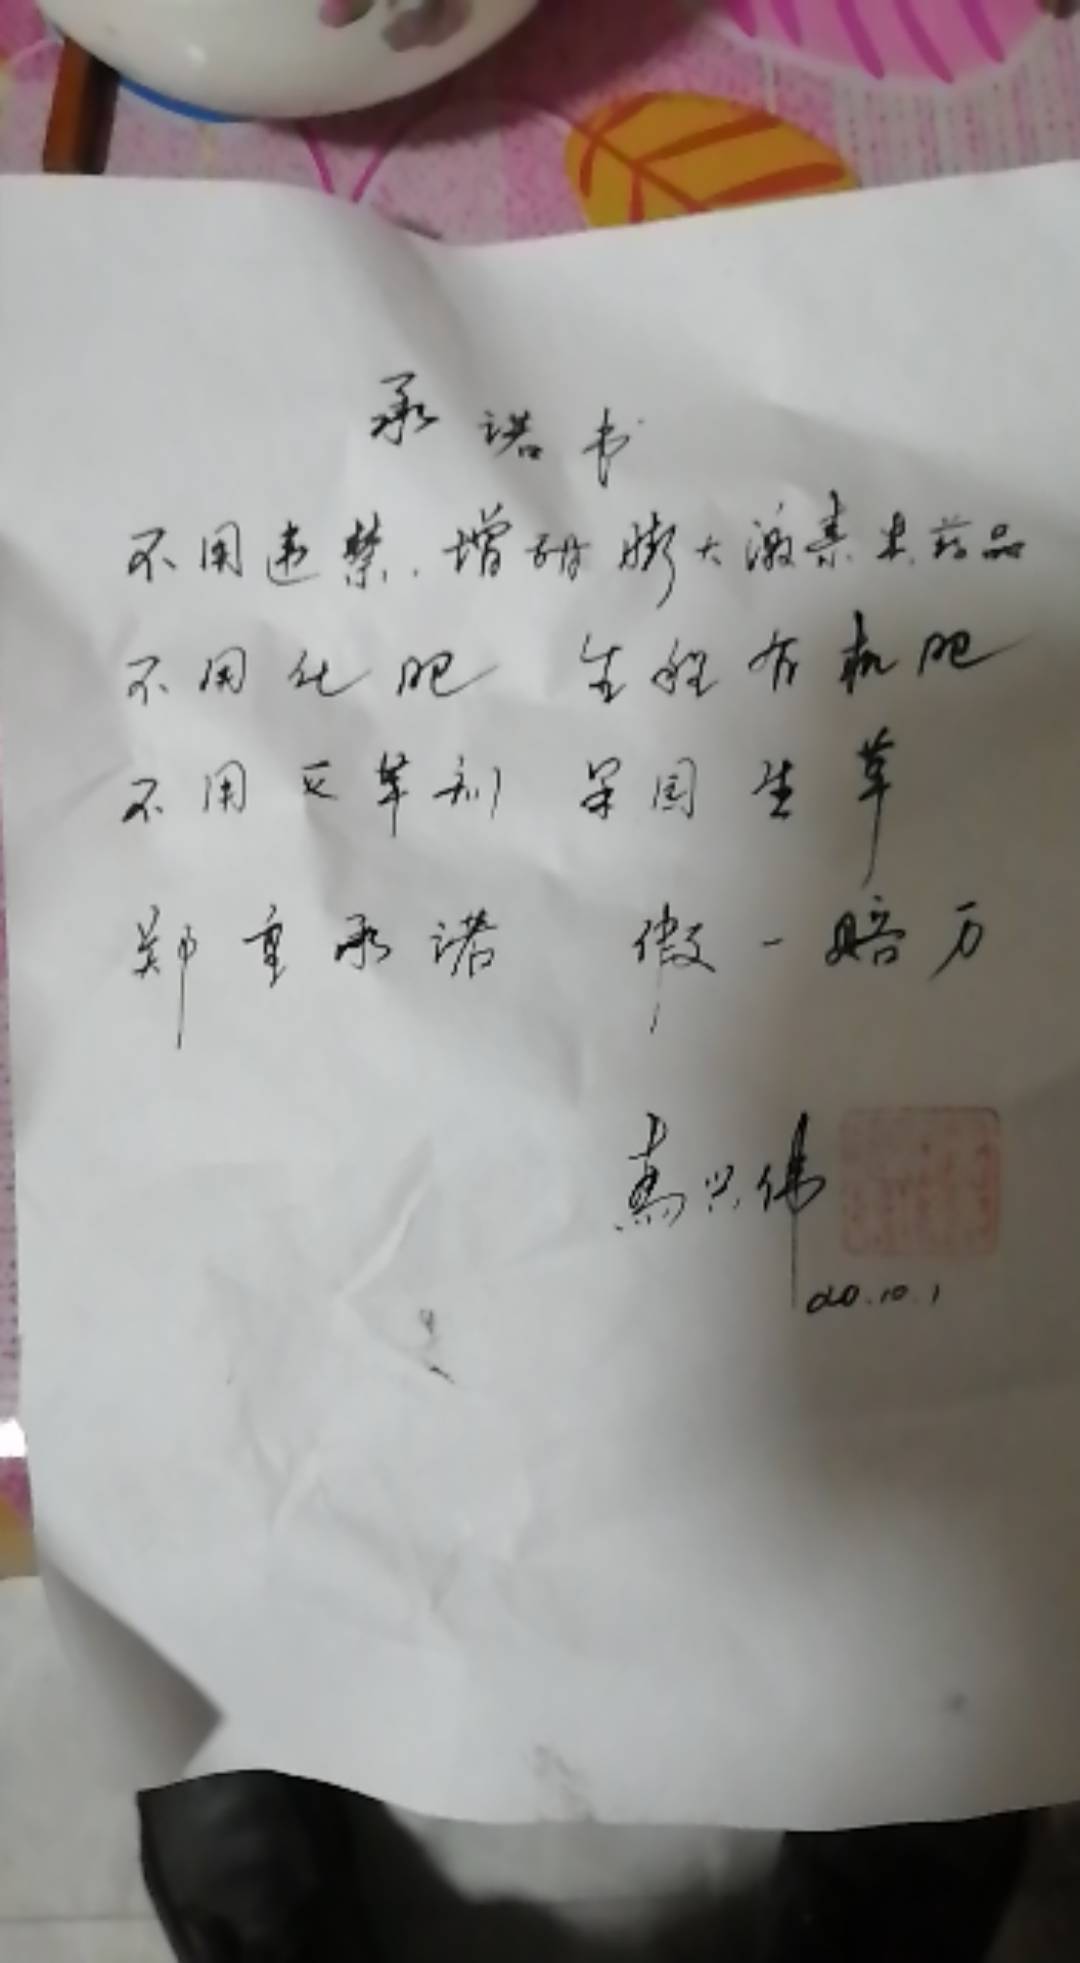 承诺书
不用违禁.增甜膨大激素类药品
不用化肥 全程有机肥
不用灭草剂 果园生草
郑重承诺 假一赔万
高兴伟
20.10.1